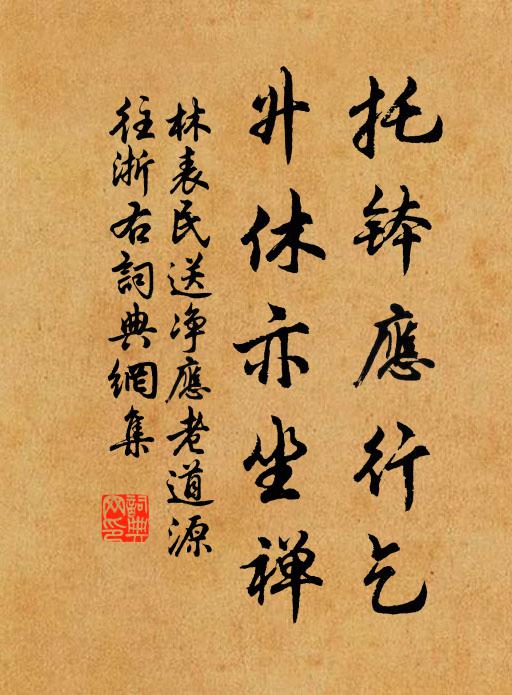 托鉢應行乞
升休亦坐禅
林表民送净應老道源
往浙右詞典網集
詞典網印